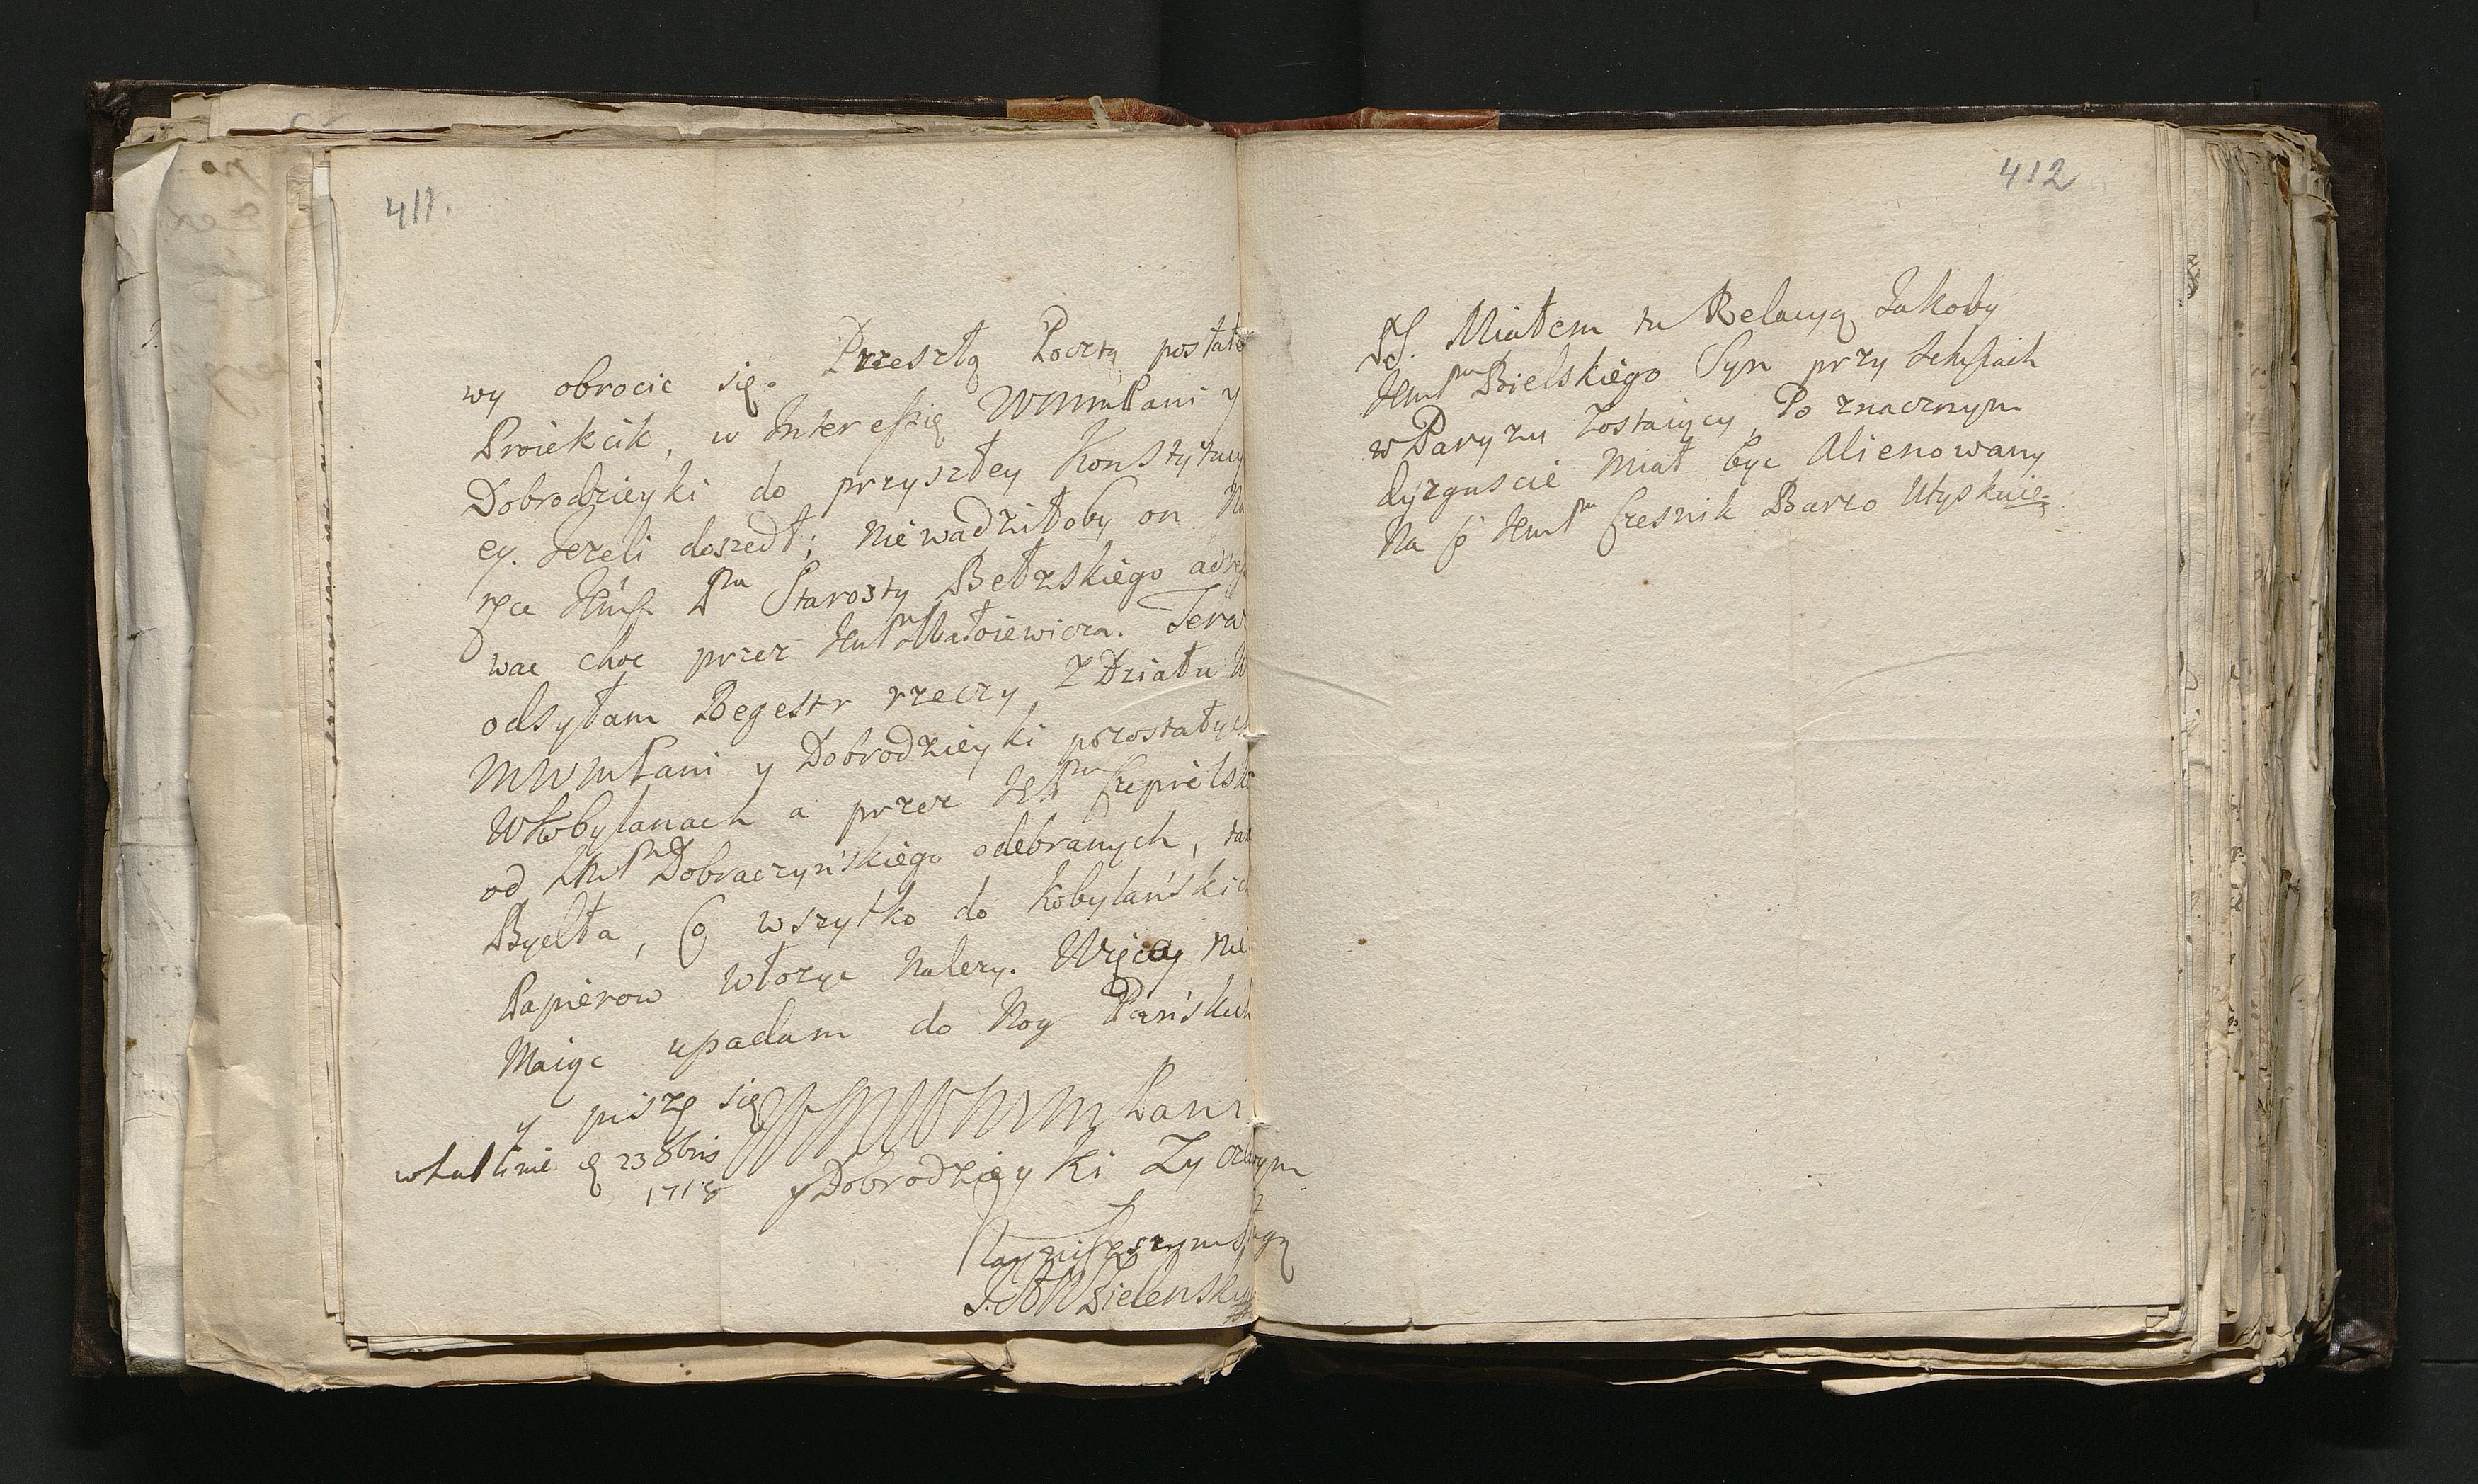 411.
wy obrocic się. Przeszłą Pocztą postało
Proiekcik, w Interessie WMMPani y
Dobrodzieyki do przyszłey Konstytucy
ey. Jezeli doszedł; nie wadziłoby on Na
ręce Jmsc Pna Starosty Bełzskiego adress
wac choc przez JmPna Małoiewicza. Teraz
odsyłam Regestr rzeczy z Działu W
MWMPani y Dobrodzieyki pozostałych
W Kobylanach a przez
od Dobraczyńskiego odebranych, tak
Byełła, Co wszytko do Kobylańskich
Papierow włozyc nalezy. Więcey nie
Maiąc upadam do Nog Pańskich
y piszę się WMMWMMPani
w Lublinie d 23 8bris
1718 y Dobrodzieyki Zyczliwym
Nayniższym Sługą
Zielenski
412
PS. Miałem tu Relacyą Jakoby
JmPna Bielskiego Syn przy
w Paryzu zostaiący, Po znacznym
dyzguscie Miał byc Alienowany
Na co JmPn Czesnik Barzo Utyskuie.